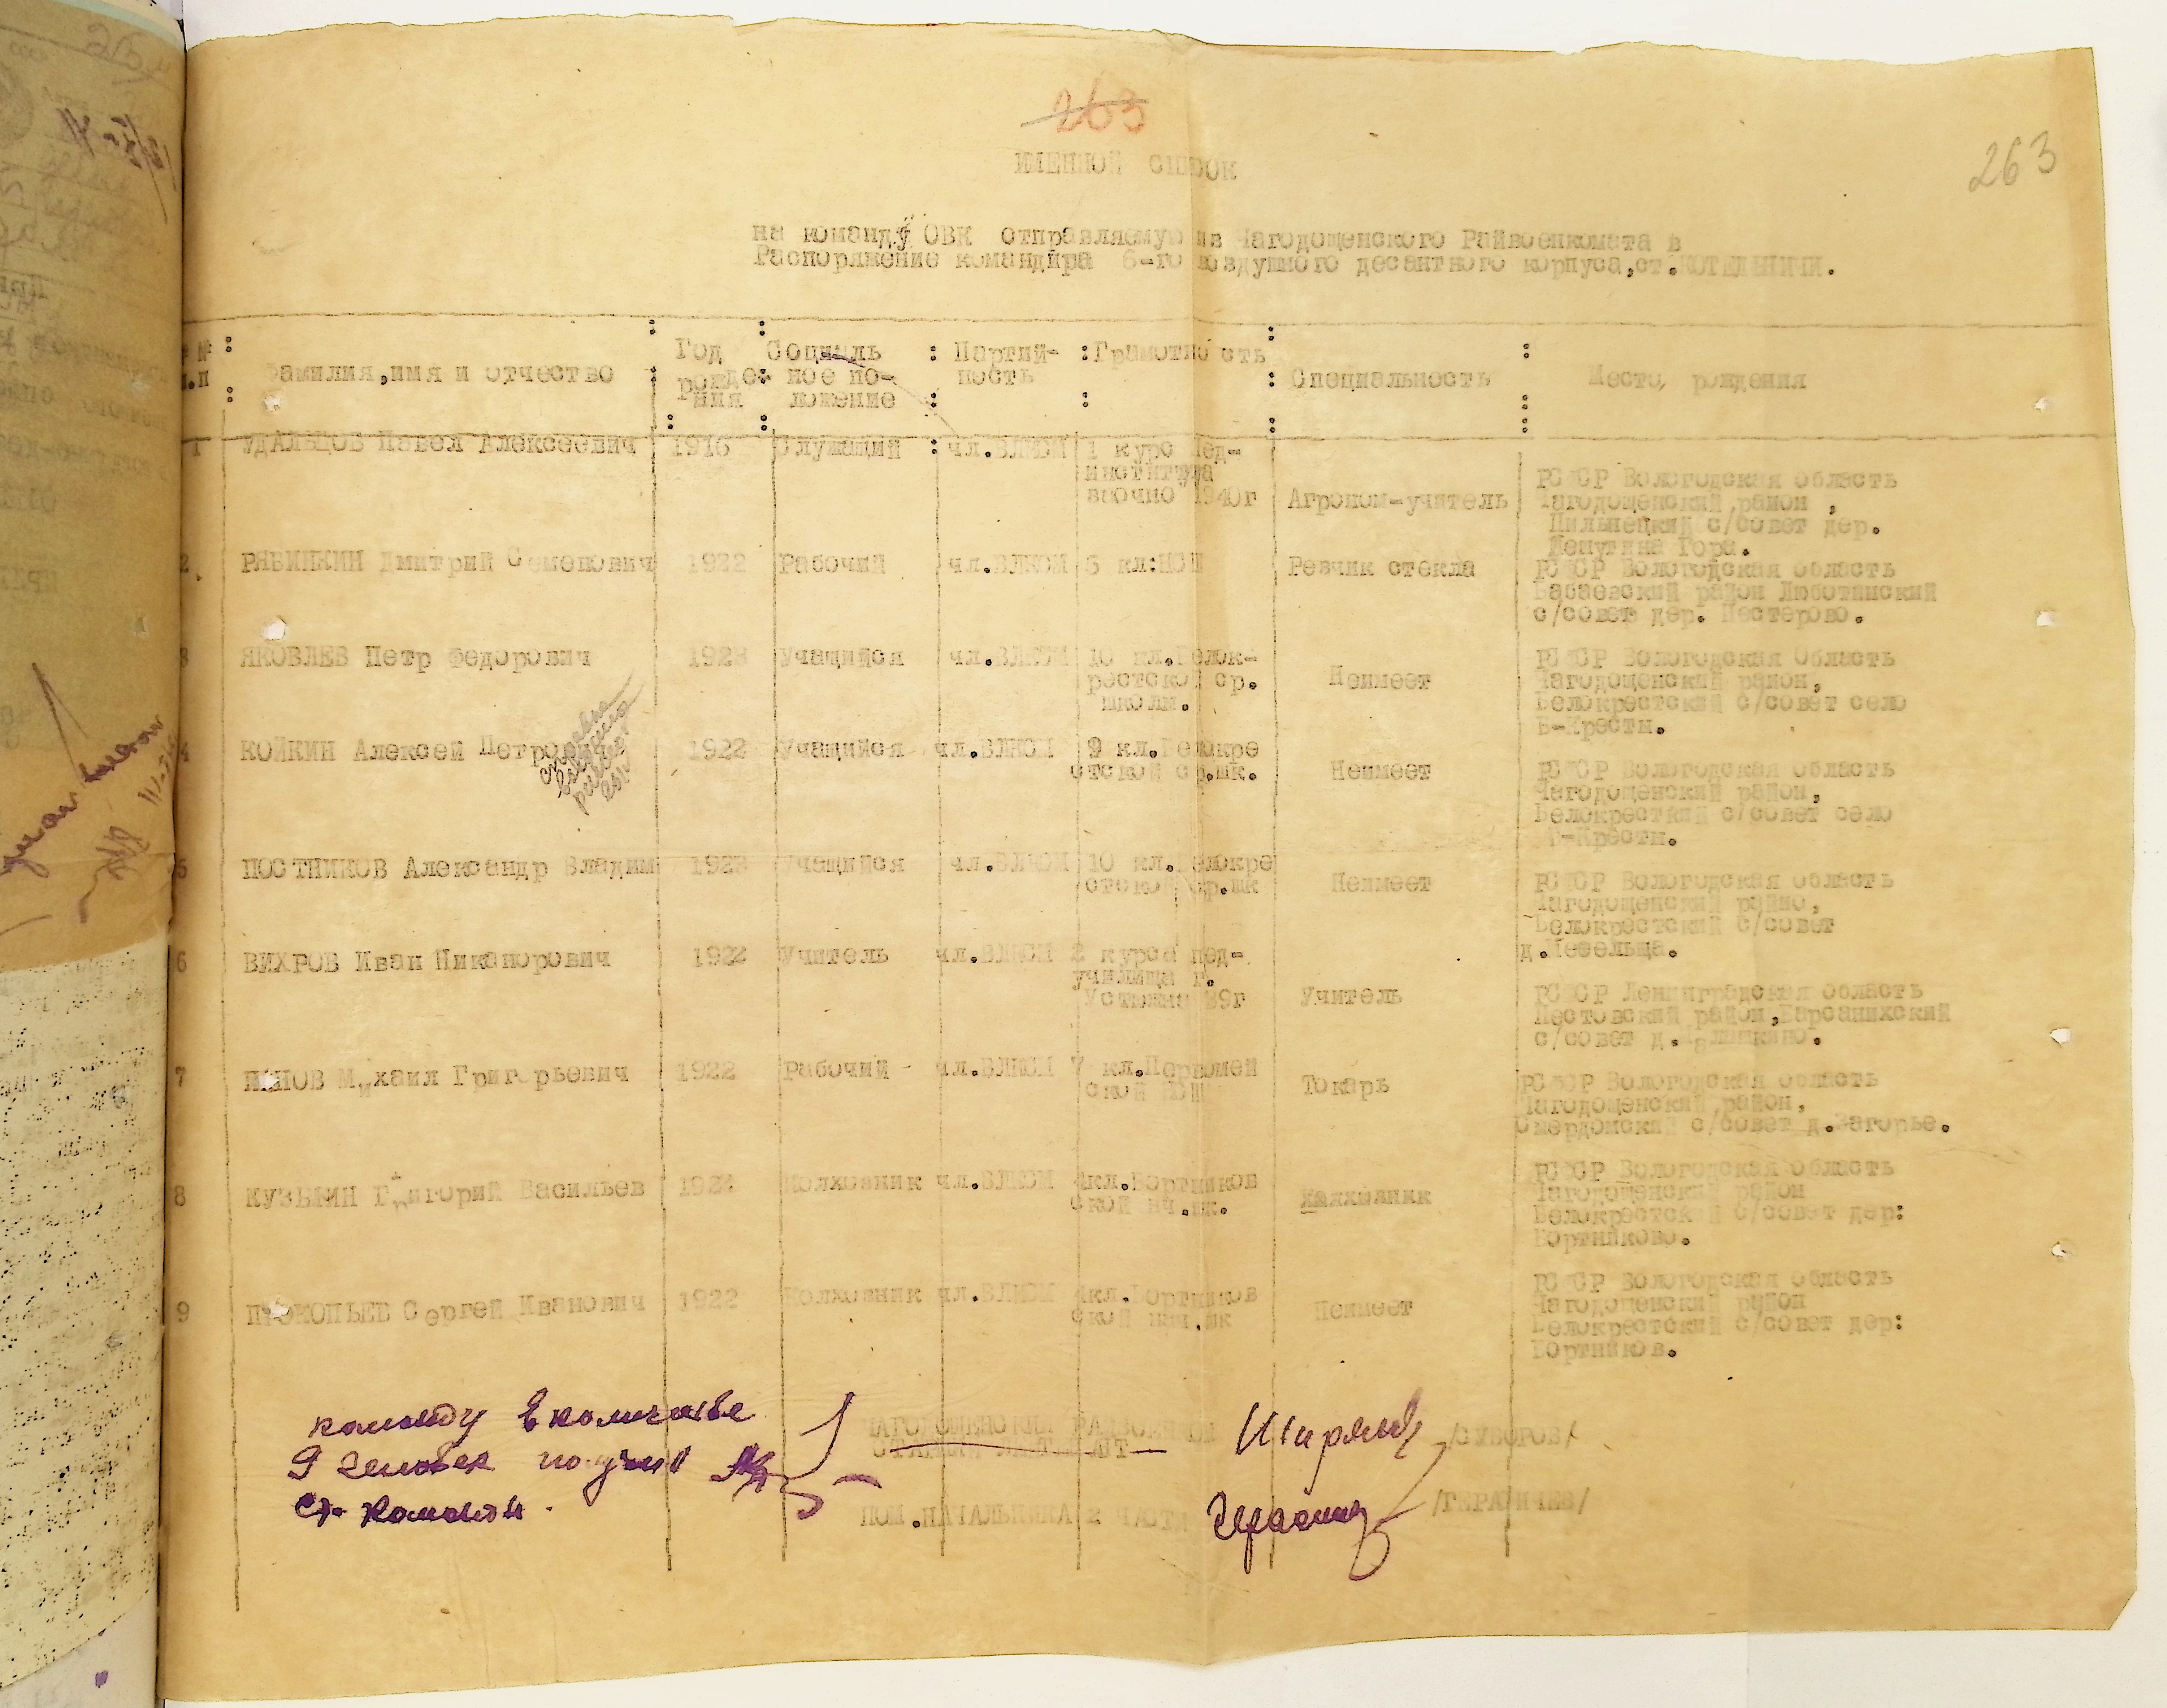 263
263
ИМЕННОЙ СПИСОК
на команду ОВК отправляемую из Чагодощенского Райвоенкомата в
Распоряжение командира 6-го воздушного десантного корпуса, ст. КОТЕЛЬНИЧИ.
№
п.п
Фамилия, имя и отчество
Год рожде- ния
Социаль ное по- ложение
Партий- ность
Грамотность
Специальность
Место, рождения
1 УДАЛЬЦОВ Павел Алексеевич 1916 Служащий чл.ВЛКСМ 1 курс Пед-
института
заочно 1940г Агроном-учитель
РСФСР Вологодская область
Чагодощенский район ,
с/совет дер.
Гора.
2 РЯБИНКИН Дмитрий Семенович 1922 Рабочий чл.ВЛКСМ 6 кл:НСШ Резчик стекла РСФСР Вологодская область
Бабаевский район
с/совет дер. Пестерово.
3 ЯКОВЛЕВ Петр Федорович 1923 Учащийся чл.ВЛКСМ 10 кл.Белок- РСФСР Вологодская Область
рестской ср. Неимеет Чагодощенский район,
школы. Белокрестский с/совет село
Б-Кресты.
4 КОЙКИН Алексей Петрович 1922 Учащийся чл.ВЛКСМ 9 кл.Белокре
стской ср.шк. Неимеет РСФСР Вологодская область
Чагодощенский район,
Белокресткий с/совет село
Б-Кресты.
5 ПОСТНИКОВ Александр Владим 1923 Учащийся чл.ВЛКСМ 10 кл.Белокре
стской ср.шк Неимеет РСФСР Вологодская область
Чагодощенский
Белокрестский с/совет
6 ВИХРОВ Иван Никанорович 1922 Учитель чл.ВЛКСМ 2 курса пед- д.
училища г.
Устюжна 39г Учитель РСФСР Ленинградская область
Пестовский район,
с/совет д.
7 Михаил Григорьевич 1922 Рабочий чл.ВЛКСМ 7 кл.Первомей
ской НСШ Токарь РСФСР Вологодская область
Чагодощенский район,
Смердомский с/совет д.Загорье.
8 КУЗЬМИН Григорий Васильев 1922 Колхозник чл.ВЛКСМ 4кл.Бортников РСФСР Вологодская область
ской нч.шк. Чагодощенский район
Белокрестский с/совет дер:
Бортниково.
9 ПРОКОПЬЕВ Сергей Иванович 1922 Колхозник чл.ВЛКСМ 4кл.Бортников РСФСР Вологодская область
ской нач.шк Неимеет Чагодощенский район
Белокрестский с/совет дер:
Бортников.
команду в количестве
9 человек получил
ст. команды.
ЧАГОДОЩЕНСКИЙ РАЙВОЕНКОМ
/СУВОРОВ/
ПОМ.НАЧАЛЬНИКА 2 ЧАСТИ
/ГЕРАСИЧЕВ/